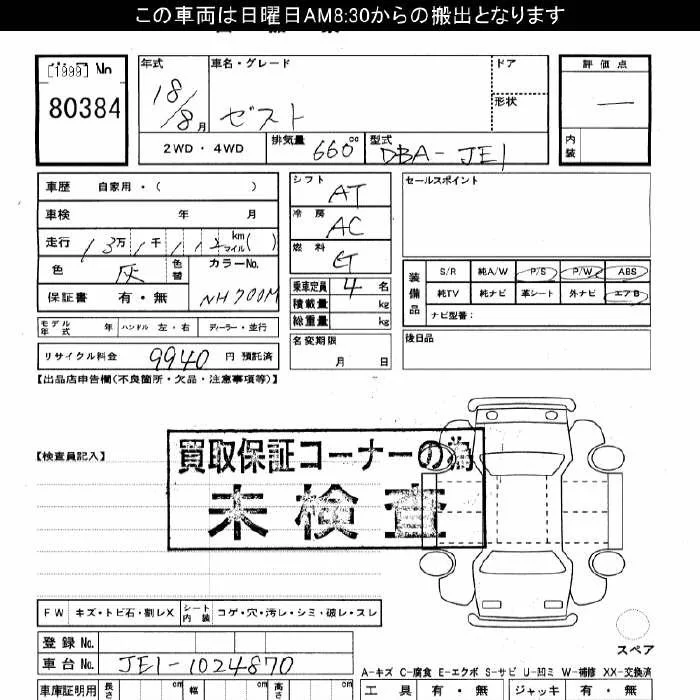 この車両は日曜日AM8:30からの搬出となります
[1999] No
80384
年式 車名・グレード ドア 評価点
18/8月 ゼスト 形状 —
2WD・4WD 排気量 660cc 型式 DBA-JE1 内装
車歴 自家用・( )
車検 年 月
走行 13万1千112km(マイル)
色 灰 色替 カラーNo. NH700M
保証書 有・無
モデル年式 年 ハンドル 左・右 ディーラー・並行
リサイクル料金 9940 円 預託済
シフト AT
冷房 AC
燃料
乗車定員 4 名
積載量 kg
総重量 kg
名変期限
月 日
セールスポイント
装備品 S/R 純A/W P/S P/W ABS
純TV 純ナビ 革シート 外ナビ エアB
ナビ型番:
後日品
【出品店申告欄(不良箇所・欠品・注意事項等)】
【検査員記入】
買取保証コーナーの為
未検査
FW キズ・トビ石・割レX シート内装 コゲ・穴・汚レ・シミ・破レ・スレ
登録No.
車台No. JE1-1024870
スペア
A-キズ C-腐食 E-エクボ S-サビ U-凹ミ W-補修 XX-交換済
車庫証明用 長さ cm 幅 cm 高さ cm 工具 有・無 ジャッキ 有・無